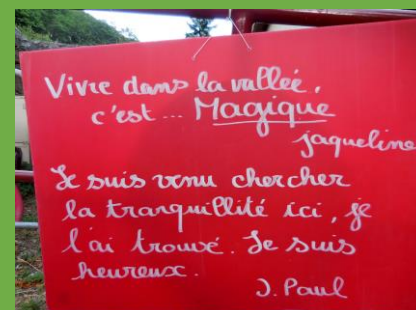 Vivre dans la vallée,
c'est... Magique
jaqueline
Je suis venu chercher
la tranquillité ici, je
l'ai trouvé. Je suis
heureux.
J. Paul